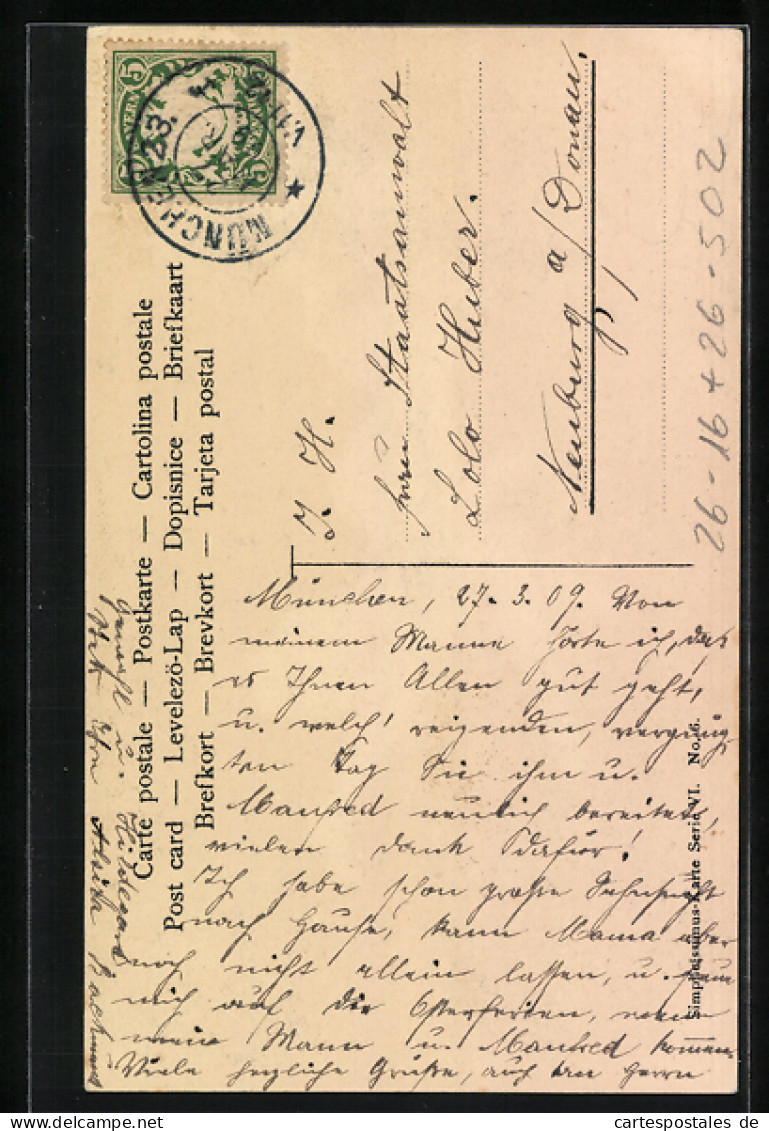 Carte postale — Postkarte — Cartolina postale
Post card — Levelező-Lap — Dopisnice — Briefkaart
Brefkort — Brevkort — Tarjeta postal
5
5
MÜNCHEN 23.
J. H.
Frau Staatsanwalt
Lolo Huber.
Neuburg a/Donau.
26-16+26-502
München, 27. 3. 09. Von
meinem Manne hörte ich, daß
es Ihnen Allen gut geht,
u. welch' reizenden, vergnüg-
ten Tag Sie ihm u.
Manfred neulich bereitet,
vielen Dank dafür!
Ich habe schon große Sehnsucht
nach Hause, kann Mama aber
noch nicht allein lassen, u. freue
mich auf die Osterferien, wenn
mein Mann u. Manfred kommen.
Viele herzliche Grüße, auch an Herrn
Gemahl u. Hildegard
Ihre
Simplicissimus-Karte Serie VI. No. 6.
cartespostales.de